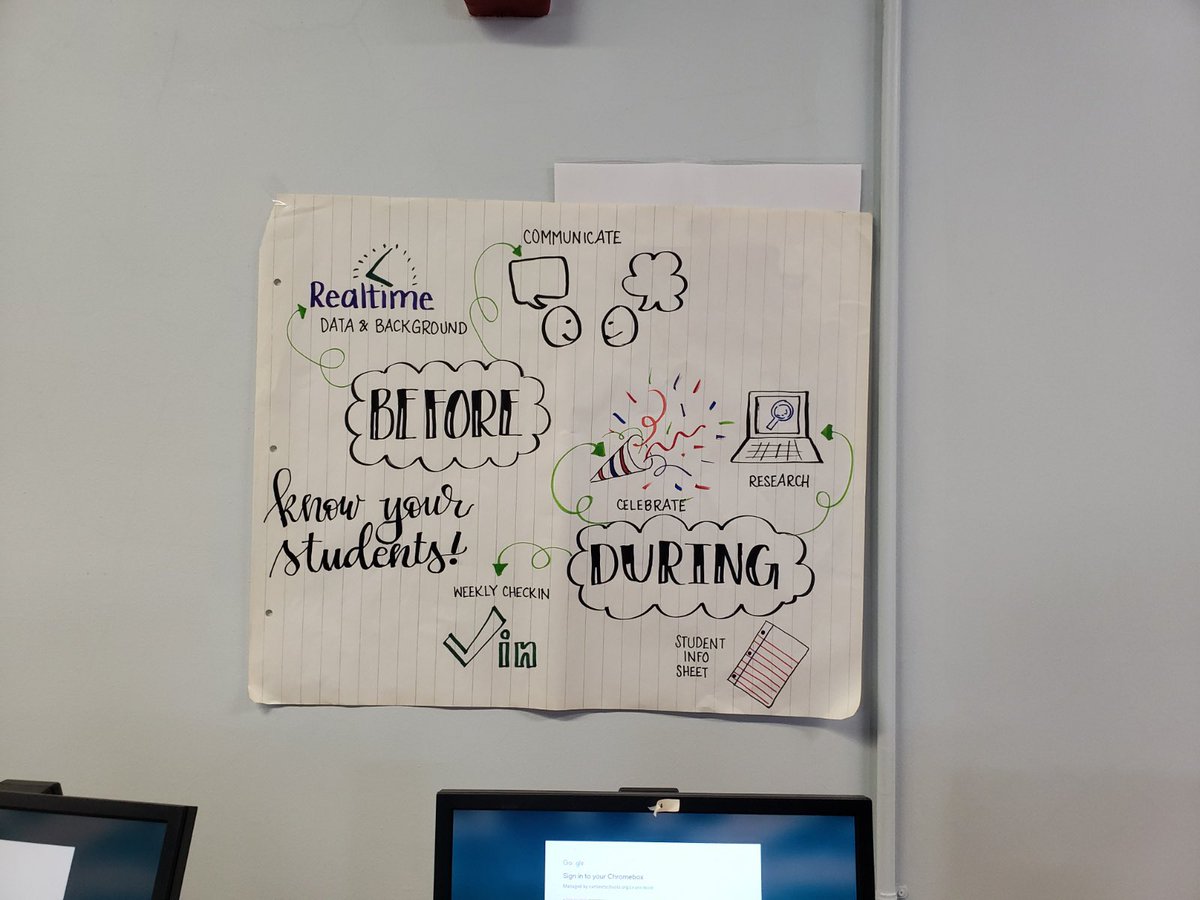 COMMUNICATE
Realtime
DATA & BACKGROUND
BEFORE
know your
students!
CELEBRATE
RESEARCH
DURING
WEEKLY CHECKIN
in
STUDENT
INFO
SHEET
Google
Sign in to your Chromebox
Managed by